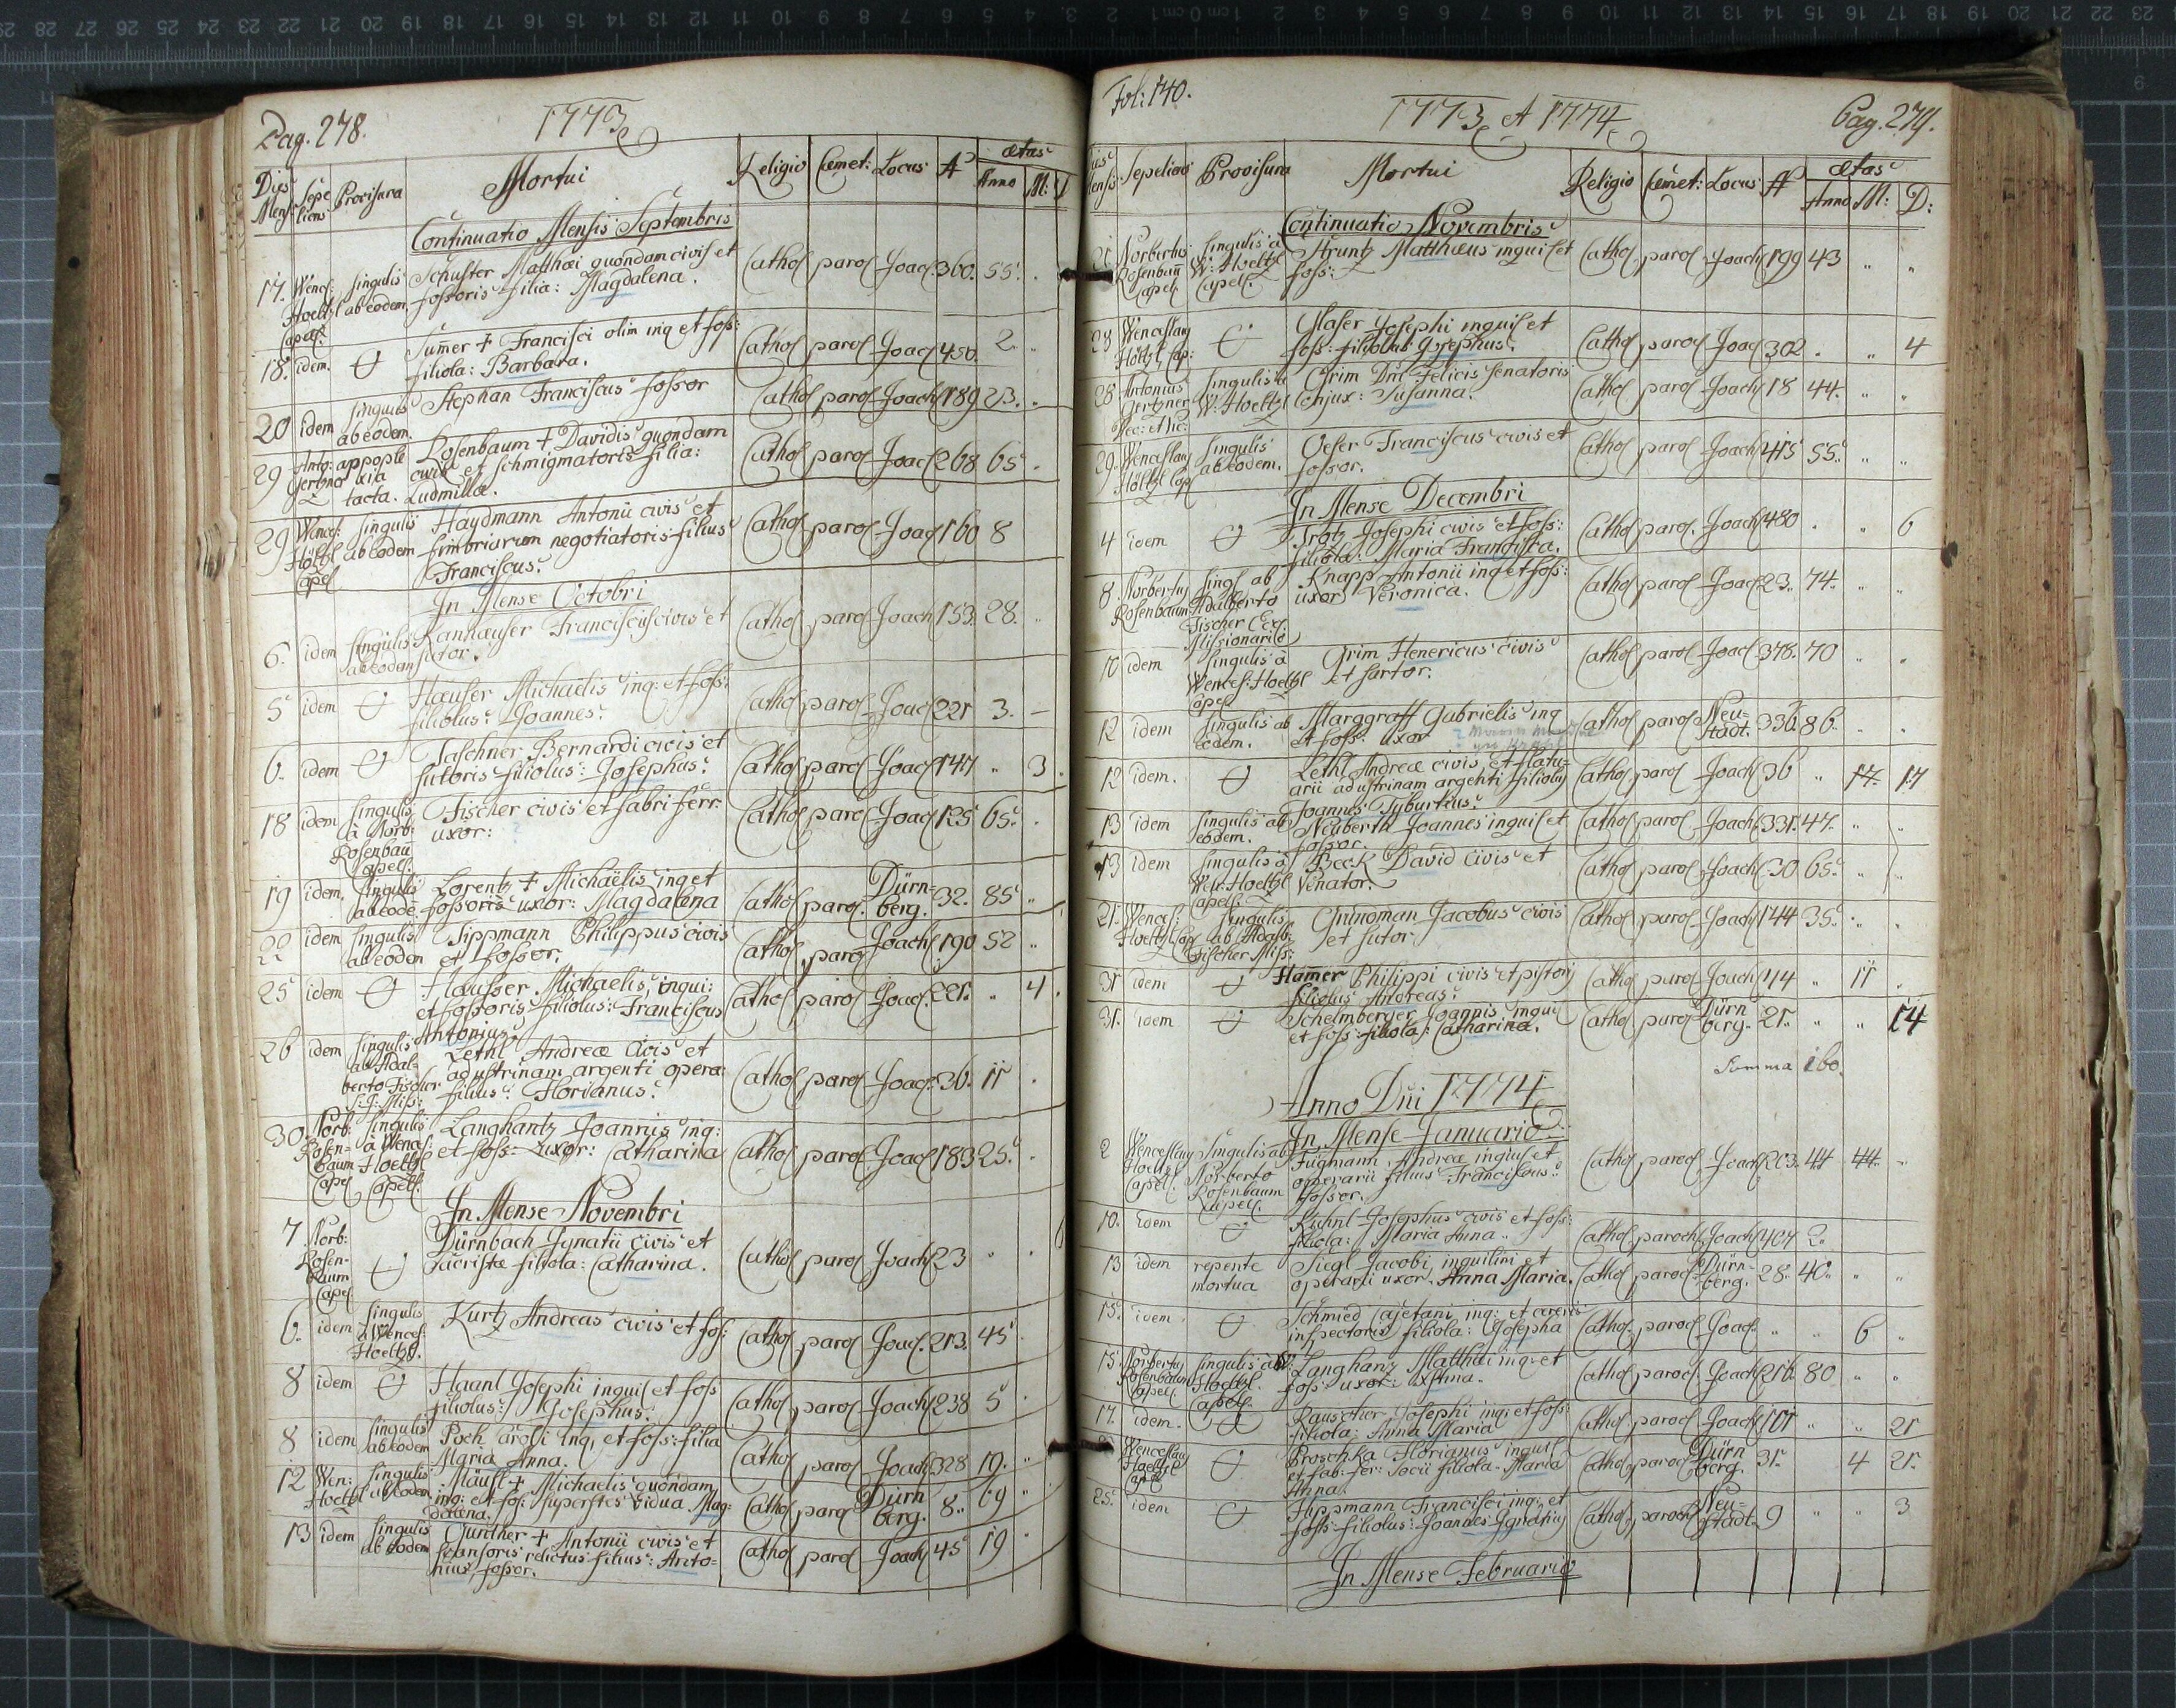 Pag. 278.
1773
Dies Mens: Sepeliens Provisura Mortui Religio Cæmet: Locus N° ætas
Anno M: D
Continuatio Mensis Septembris
17. Wencz: Hoeltzl Capel: singulis ab eodem. Schuster Matthæi quondam civis et Cathol paroch Joach 360. 55.
fossoris filia: Magdalena.
18. idem. Sumer + Francisci olim inq et foss: Cathol paroch Joach 450. 2.
filiola: Barbara.
20 idem singulis ab eodem. Stephan Franciscus fossor Cathol paroch Joach 189 23.
29 Anto: Gerbner appople xia tacta. Rosenbaum + Davidis quondam Cathol paroch Joach 268 65.
civis et schmigmatoris filia:
Ludmilla.
29 Wencz: Höltzl Capel singulis ab eodem Haydmann Antonii civis et Cathol paroch Joach 160 8
fimbriarum negotiatoris filius
Franciscus.
In Mense Octobri
6. idem singulis ab eodem Ranhæuser Franciscus civis et Cathol paroch Joach 153. 28.
sutor.
5 idem Hæuser Michaelis inq: et foss: Cathol paroch Joach 221 3. —
filiolus: Joannes.
6. idem Taschner Bernardi civis et Cathol paroch Joach 147 " 3.
sutoris filiolus: Josephus.
18 idem singulis à Norb: Rosenbau Capell. Fischer civis et fabri ferr: Cathol paroch Joach 125 65.
uxor:
19 idem. singulis ab eodē Lorentz + Michaëlis inq et Cathol paroch. Dürn-berg. 32. 85.
fossoris uxor: Magdalena
22 idem singulis ab eodem Sippmann Philippus civis Cathol paroch Joach 190 52
et fossor.
25 idem Hæusser Michaelis, inqui: Cathol paroch Joach. 221. " 4.
et fossoris filiolus: Franciscus
Antonius.
26 idem singulis ab Adal-berto Fischer S.J. Miss: Lethl Andreæ civis et Cathol paroch Joach. 36. 11
ad ustrinam argenti opera:
filius: Florianus.
30. Norb: Rosen-baum Capel singulis à Wencz: Hoeltzl Capell. Langhantz Joannis inq: Cathol paroch Joach 183 25.
et foss: uxor: Catharina
In Mense Novembri
7 Norb: Rosen-baum Capel Dürnbach Ignatii civis et Cathol paroch Joach 23
sacristæ filiola: Catharina.
6. idem singulis à Wencel: Hoeltzl. Kurtz Andreas civis et foss: Cathol paroch Joach. 213. 45
8 idem Haanl Josephi inquil et foss Cathol paroch Joach 238 5
filiolus: Josephus.
8 idem singulis ab eodem Poch Caroli inq, et foss: filia Cathol paroch Joach 328 19.
Maria Anna.
12 Wen: Hoeltzl singulis ab eodem. Mäusl + Michaelis quondam Cathol paroch Dürn berg. 8. 69
inq: et foss: superstes vidua Mag:
dalena.
13 idem singulis ab eodem Günther + Antonii civis et Cathol paroch Joach 45 19
scansoris relictus filius: Anto-
nius, fossor.
Fol: 140.
1773 et 1774
Pag. 279.
Dies Mensis Sepeliens Provisura Mortui Religio Cæmet: Locus N° ætas
Anno M: D:
Continuatio Novembris
Norbertus Rosenbau Capel singulis à W: Hoeltzl Capel. Struntz Matthæus inquil et Cathol paroch Joach 199 43 " "
foss:
28 Wenceslaus Höltzl Cap: Glaser Josephi inquil et Cathol paroch Joach 302 . " 4
foss: filiolus Josephus.
28 Antonius Gerbner singulis à W: Hoeltzl Grim Dni Felicis senatoris Cathol paroch Joach 18 44. " "
Conjux: Susanna.
29. Wenceslaus Höltzl Cap singulis ab eodem. Oeser Franciscus civis et Cathol paroch Joach 415 55. " "
fossor.
In Mense Decembri
4 idem Trötz Josephi civis et foss: Cathol paroch. Joach 480 . " 6
filiola: Maria Francisca.
8 Norbertus Rosenbaum singl ab Adalberto Fischer Missionario Knapp Antonii inq et foss: Cathol paroch Joach 23. 74. "
uxor Veronica.
10 idem singulis à Wencz: Hoeltzl Capel Grim Henericus civis Cathol paroch Joach 378. 70 " "
et sartor.
12 idem singulis ab eodem. Marggraff Gabrielis inq Cathol paroch Neu-stadt. 336. 86. " "
et foss: uxor
12 idem. Lethl Andreæ civis, et flatu- Cathol paroch Joach 36 " 17. 17
arii ad ustrinam argenti filiolus
Joannes Tyburtius.
13 idem singulis ab eodem. Neuberth Joannes inquil et Cathol paroch Joach 331. 47. " "
fossor.
13 idem singulis à Wen: Hoeltzl Capell. Beck David civis et Cathol paroch Joach 30 65. " "
Venator.
21. Wencel: Hoeltzl Cap singulis ab Adalb: Fischer Miss: Jacobus civis Cathol paroch Joach 144 35. " .
et sutor
31 idem Hamer Philippi civis et pistoris Cathol paroch Joach 44 " 11 "
filiolus Andreas.
31. idem Schelmberger Joannis inqui Cathol paroch Dürn berg. 21. " " 14
et foss: filiola: Catharina.
Summa 160.
Anno Dni 1774
In Mense Januario
2 Wenceslaus Hoeltzl Capel. singulis ab Norberto Rosenbaum Capell. Fügmann Andreæ inquil et Cathol paroch Joach 203. 44 44. "
operarii filius Franciscus.
fossor.
10. idem Kühnl Josephus civis et foss: Cathol paroch Joach 404 2.
filiola: Maria Anna.
13 idem repente mortua Siegl Jacobi, inquilini et Cathol paroch Dürn-berg. 28. 40. " "
operarii uxor. Anna Maria.
15. idem Schmied Cajetani inq: et
inspectoris filiola: Josepha Cathol. paroch Joach. " " 6 "
15. Norbertus Rosenbaum Capell. singulis à W: Hoeltzl. Capell. Langhanz Matthæi inq: et Cathol paroch Joach 216. 80 " "
foss: uxor:
17. idem. Rauscher Josephi inq: et foss: Cathol paroch Joach 101 " " 21
filiola: Anna Maria
Wenceslaus Hoeltzl Capel Proschka Florianus inquil Cathol paroch Dürn berg. 31. 4 21.
et fab: fer: Socii filiola: Maria
Anna.
25. idem Hippmann Francisci inq: et Cathol, paroch Neu-stadt. 9 " " 3
foss: filiolus: Joannes Ignatius
In Mense Februario